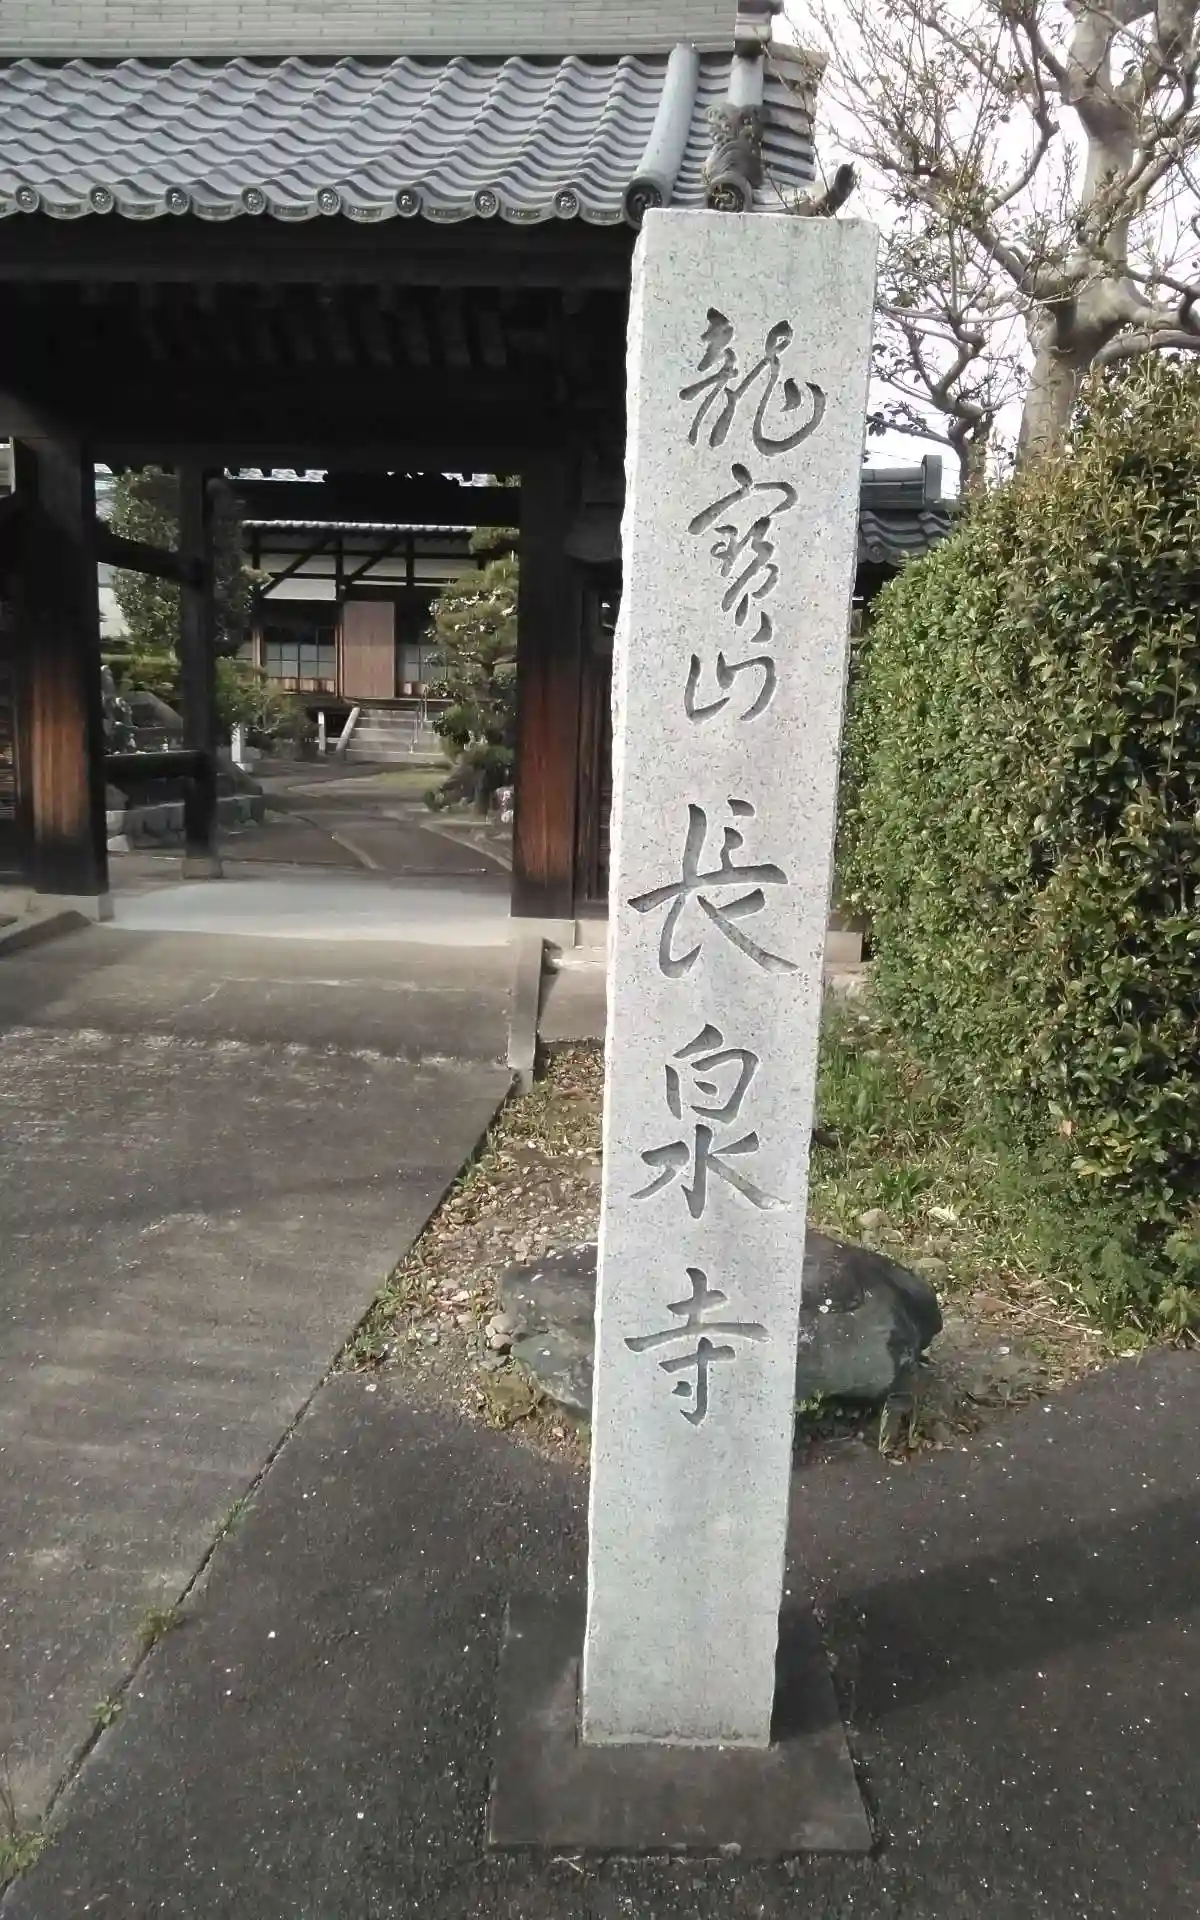 龍寳山長泉寺